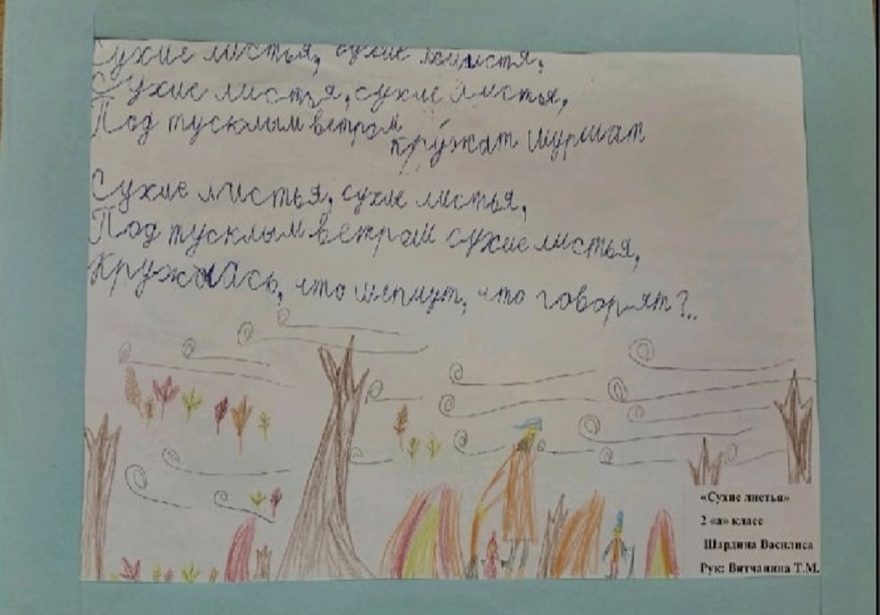 Сухие листья, сухие листья,
Сухие листья, сухие листья,
Под тусклым ветром кружат шуршат
Сухие листья, сухие листья,
Под тусклым ветром сухие листья,
Кружась, что шепчут, что говорят?..
«Сухие листья»
2 «а» класс
Шардина Василиса
Рук: Витчанина Т.М.